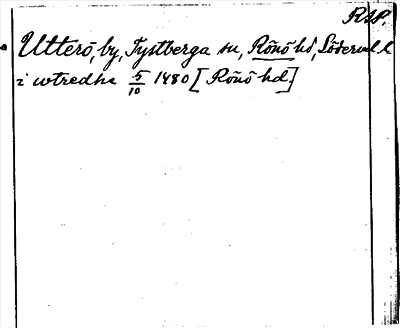 RAP.
Utterö, by, Tystberga sn, Rönö hd, Söderml. l
i wtredhe 5/10 1480 [Rönö hd.]